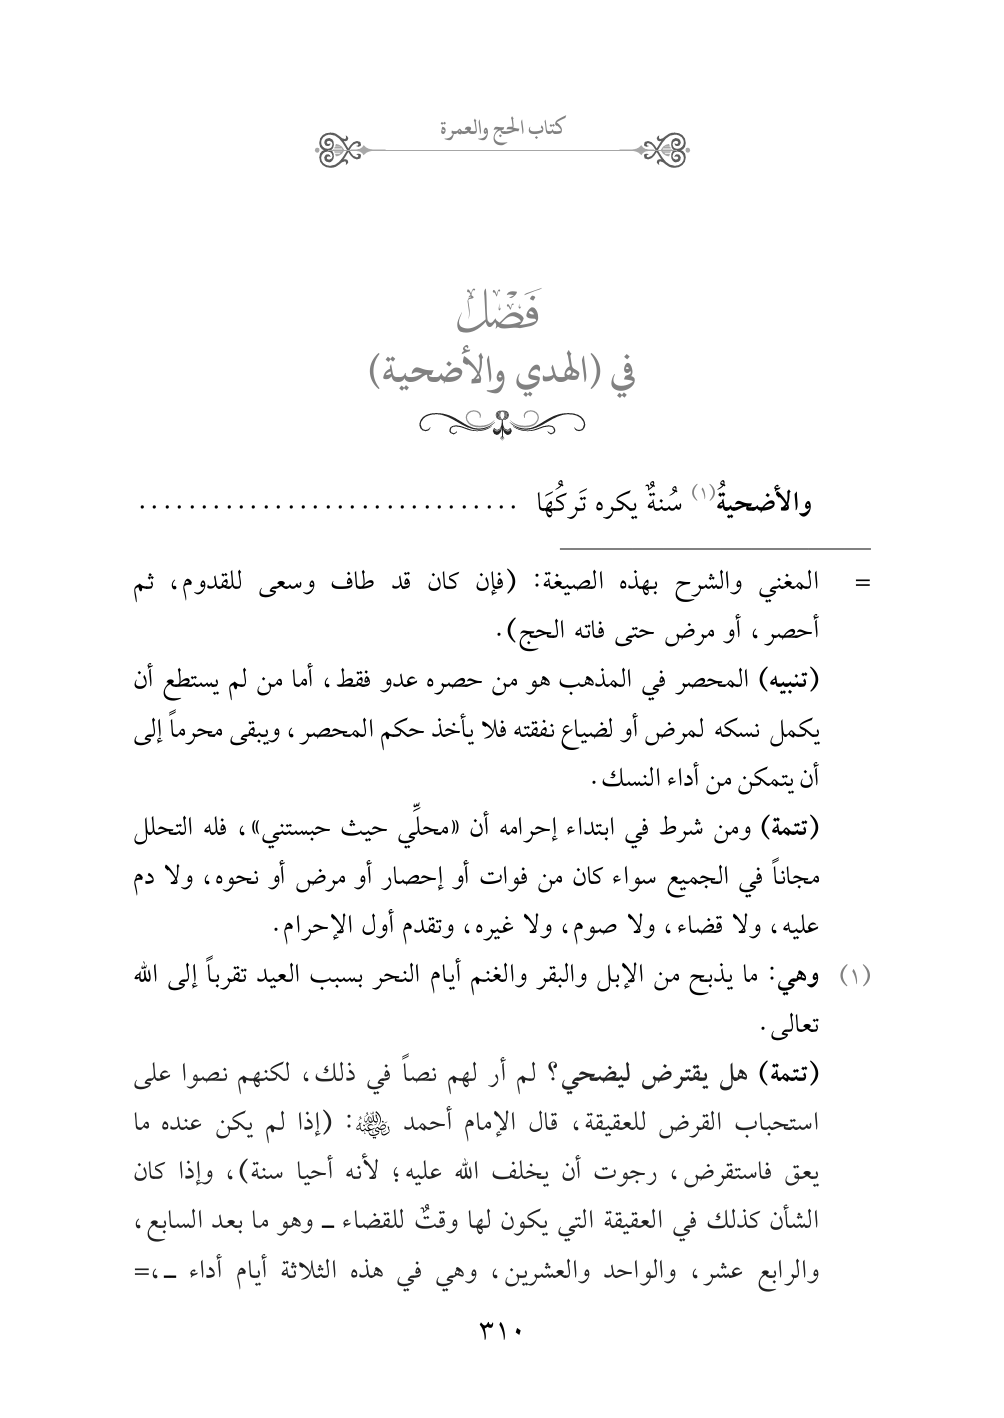 كتاب الحج والعمرة
فَصْلٌ
في (الهدي والأضحية)
والأضحيةُ(١) سُنةٌ يكره تَركُهَا ...............................
= المغني والشرح بهذه الصيغة: (فإن كان قد طاف وسعى للقدوم، ثم
أحصر، أو مرض حتى فاته الحج).
(تنبيه) المحصر في المذهب هو من حصره عدو فقط، أما من لم يستطع أن
يكمل نسكه لمرض أو لضياع نفقته فلا يأخذ حكم المحصر، ويبقى محرماً إلى
أن يتمكن من أداء النسك.
(تتمة) ومن شرط في ابتداء إحرامه أن «محلِّي حيث حبستني»، فله التحلل
مجاناً في الجميع سواء كان من فوات أو إحصار أو مرض أو نحوه، ولا دم
عليه، ولا قضاء، ولا صوم، ولا غيره، وتقدم أول الإحرام.
(١) وهي: ما يذبح من الإبل والبقر والغنم أيام النحر بسبب العيد تقرباً إلى الله
تعالى.
(تتمة) هل يقترض ليضحي؟ لم أر لهم نصاً في ذلك، لكنهم نصوا على
استحباب القرض للعقيقة، قال الإمام أحمد رضي الله عنه: (إذا لم يكن عنده ما
يعق فاستقرض، رجوت أن يخلف الله عليه؛ لأنه أحيا سنة)، وإذا كان
الشأن كذلك في العقيقة التي يكون لها وقتٌ للقضاء ـ وهو ما بعد السابع،
والرابع عشر، والواحد والعشرين، وهي في هذه الثلاثة أيام أداء ـ،=
٣١٠